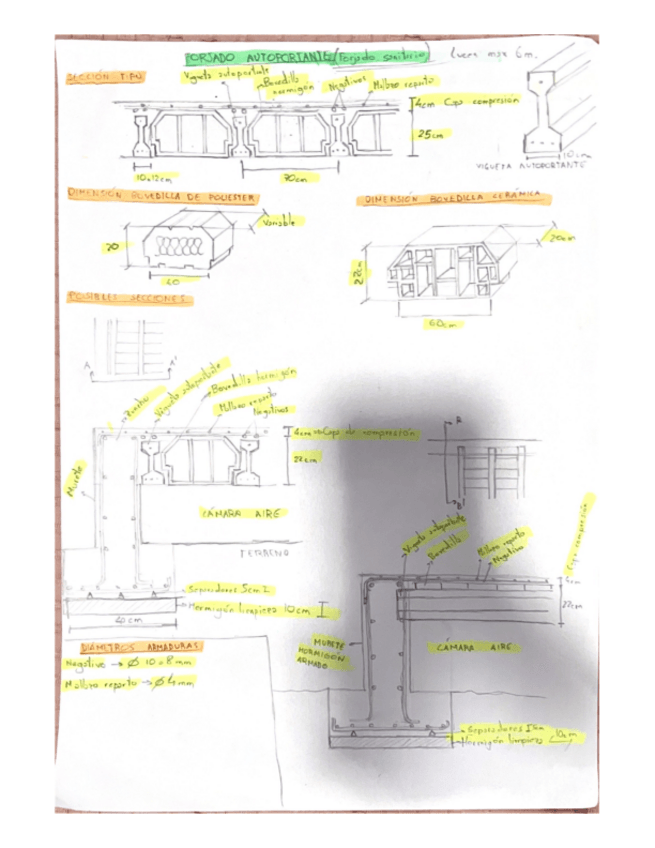 FORJADO AUTOPORTANTE (Forjado sanitario) Luces max 6m.
SECCIÓN TIPO
Vigueta autoportante
Bovedilla hormigón
Negativos
Mallazo reparto
4cm Capa compresión
25cm
10o12cm
70cm
10cm
VIGUETA AUTOPORTANTE
DIMENSIÓN BOVEDILLA DE POLIESTER
Variable
20
60
DIMENSIÓN BOVEDILLA CERÁMICA
20cm
22cm
60cm
POSIBLES SECCIONES
A A'
Zuncho
Vigueta autoportante
Bovedilla hormigón
Mallazo reparto
Negativos
4cm Capa de compresión
22cm
Murete
CÁMARA AIRE
TERRENO
Separadores 5cm
Hormigón limpieza 10cm
40cm
B
B'
Vigueta autoportante
Bovedilla
Mallazo reparto
Negativo
Capa compresión
4cm
22cm
MURETE
HORMIGÓN
ARMADO
CÁMARA AIRE
Separadores 5cm
Hormigón limpieza 10cm
DIÁMETROS ARMADURAS
Negativo → Ø 10 o 8 mm
Mallazo reparto → Ø 4mm